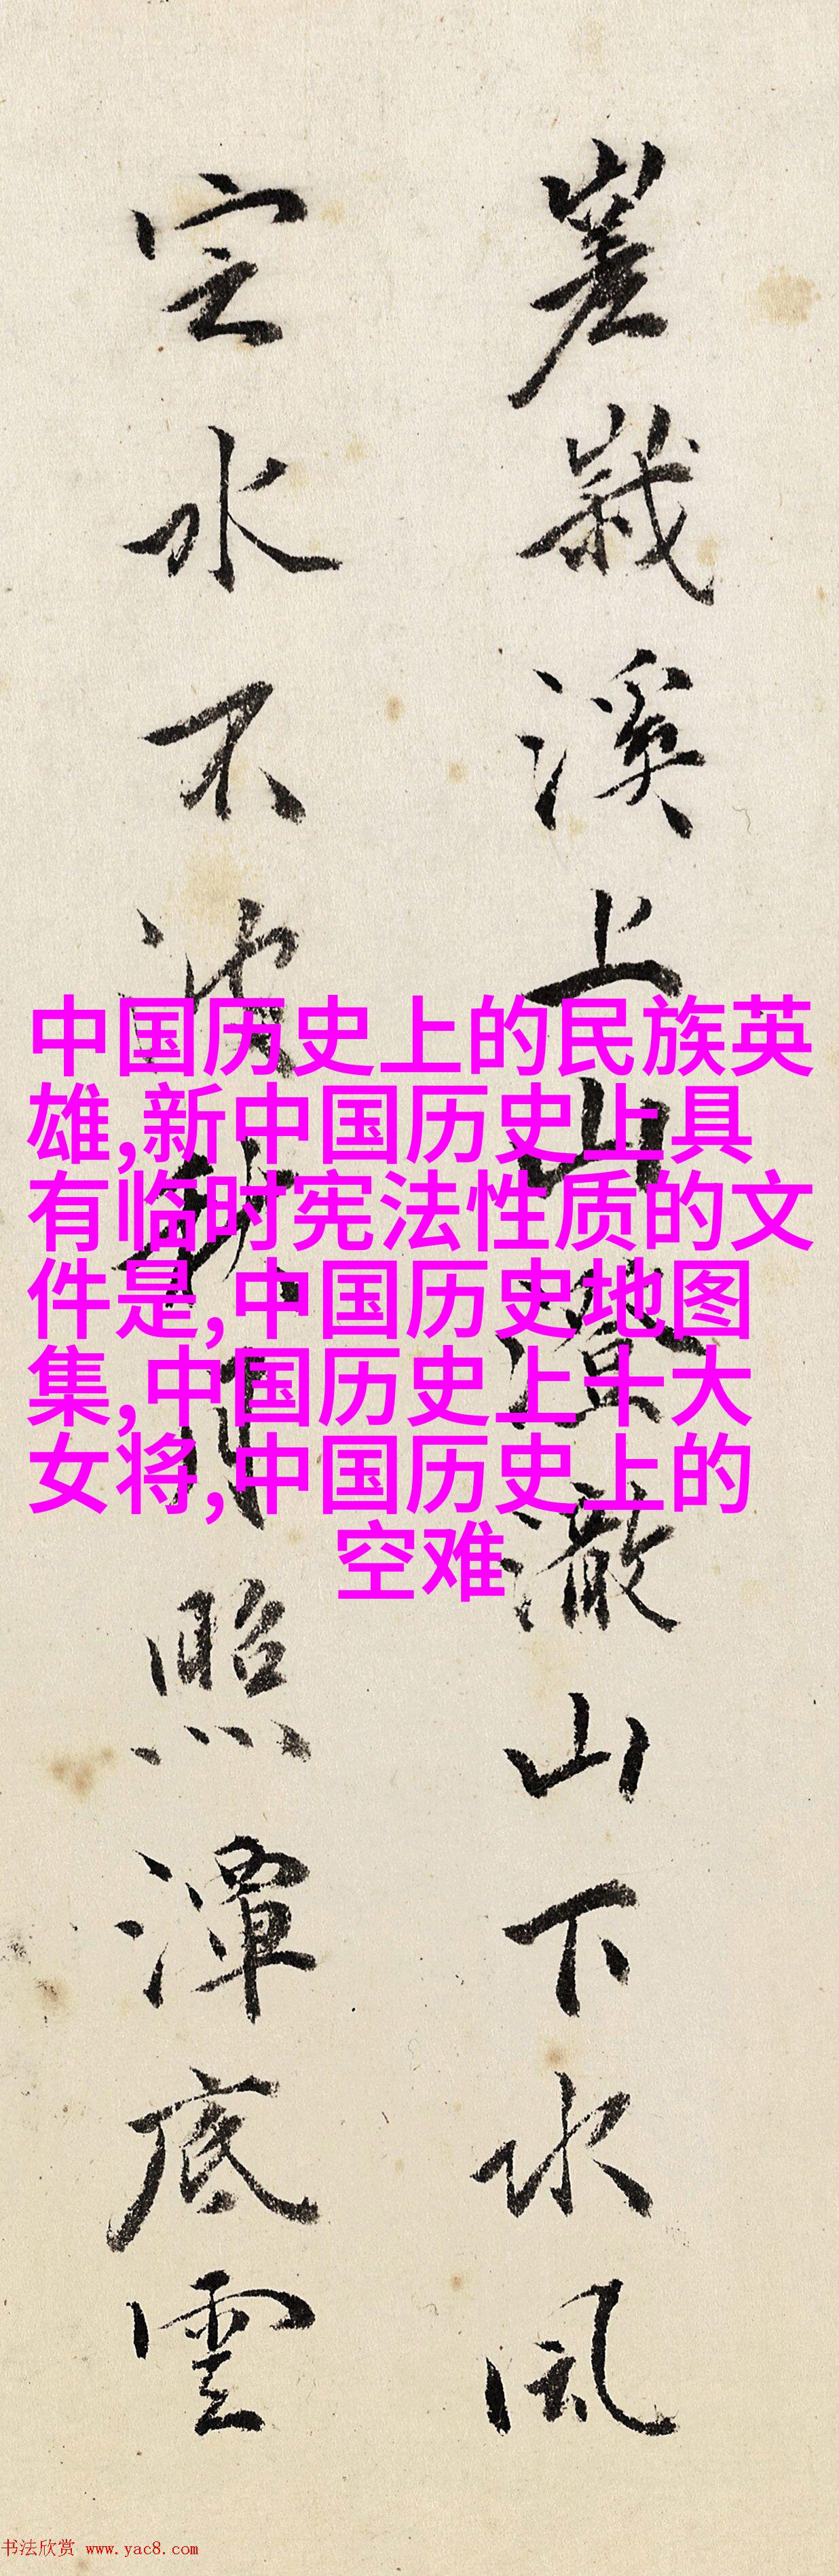 嵳峩溪上山澄澈山下水風
定水不波秋月照潭底雲
中国历史上的民族英
雄,新中国历史上具
有临时宪法性质的文
件是,中国历史地图
集,中国历史上十大
女将,中国历史上的
空难
书法欣赏 www.yac8.com